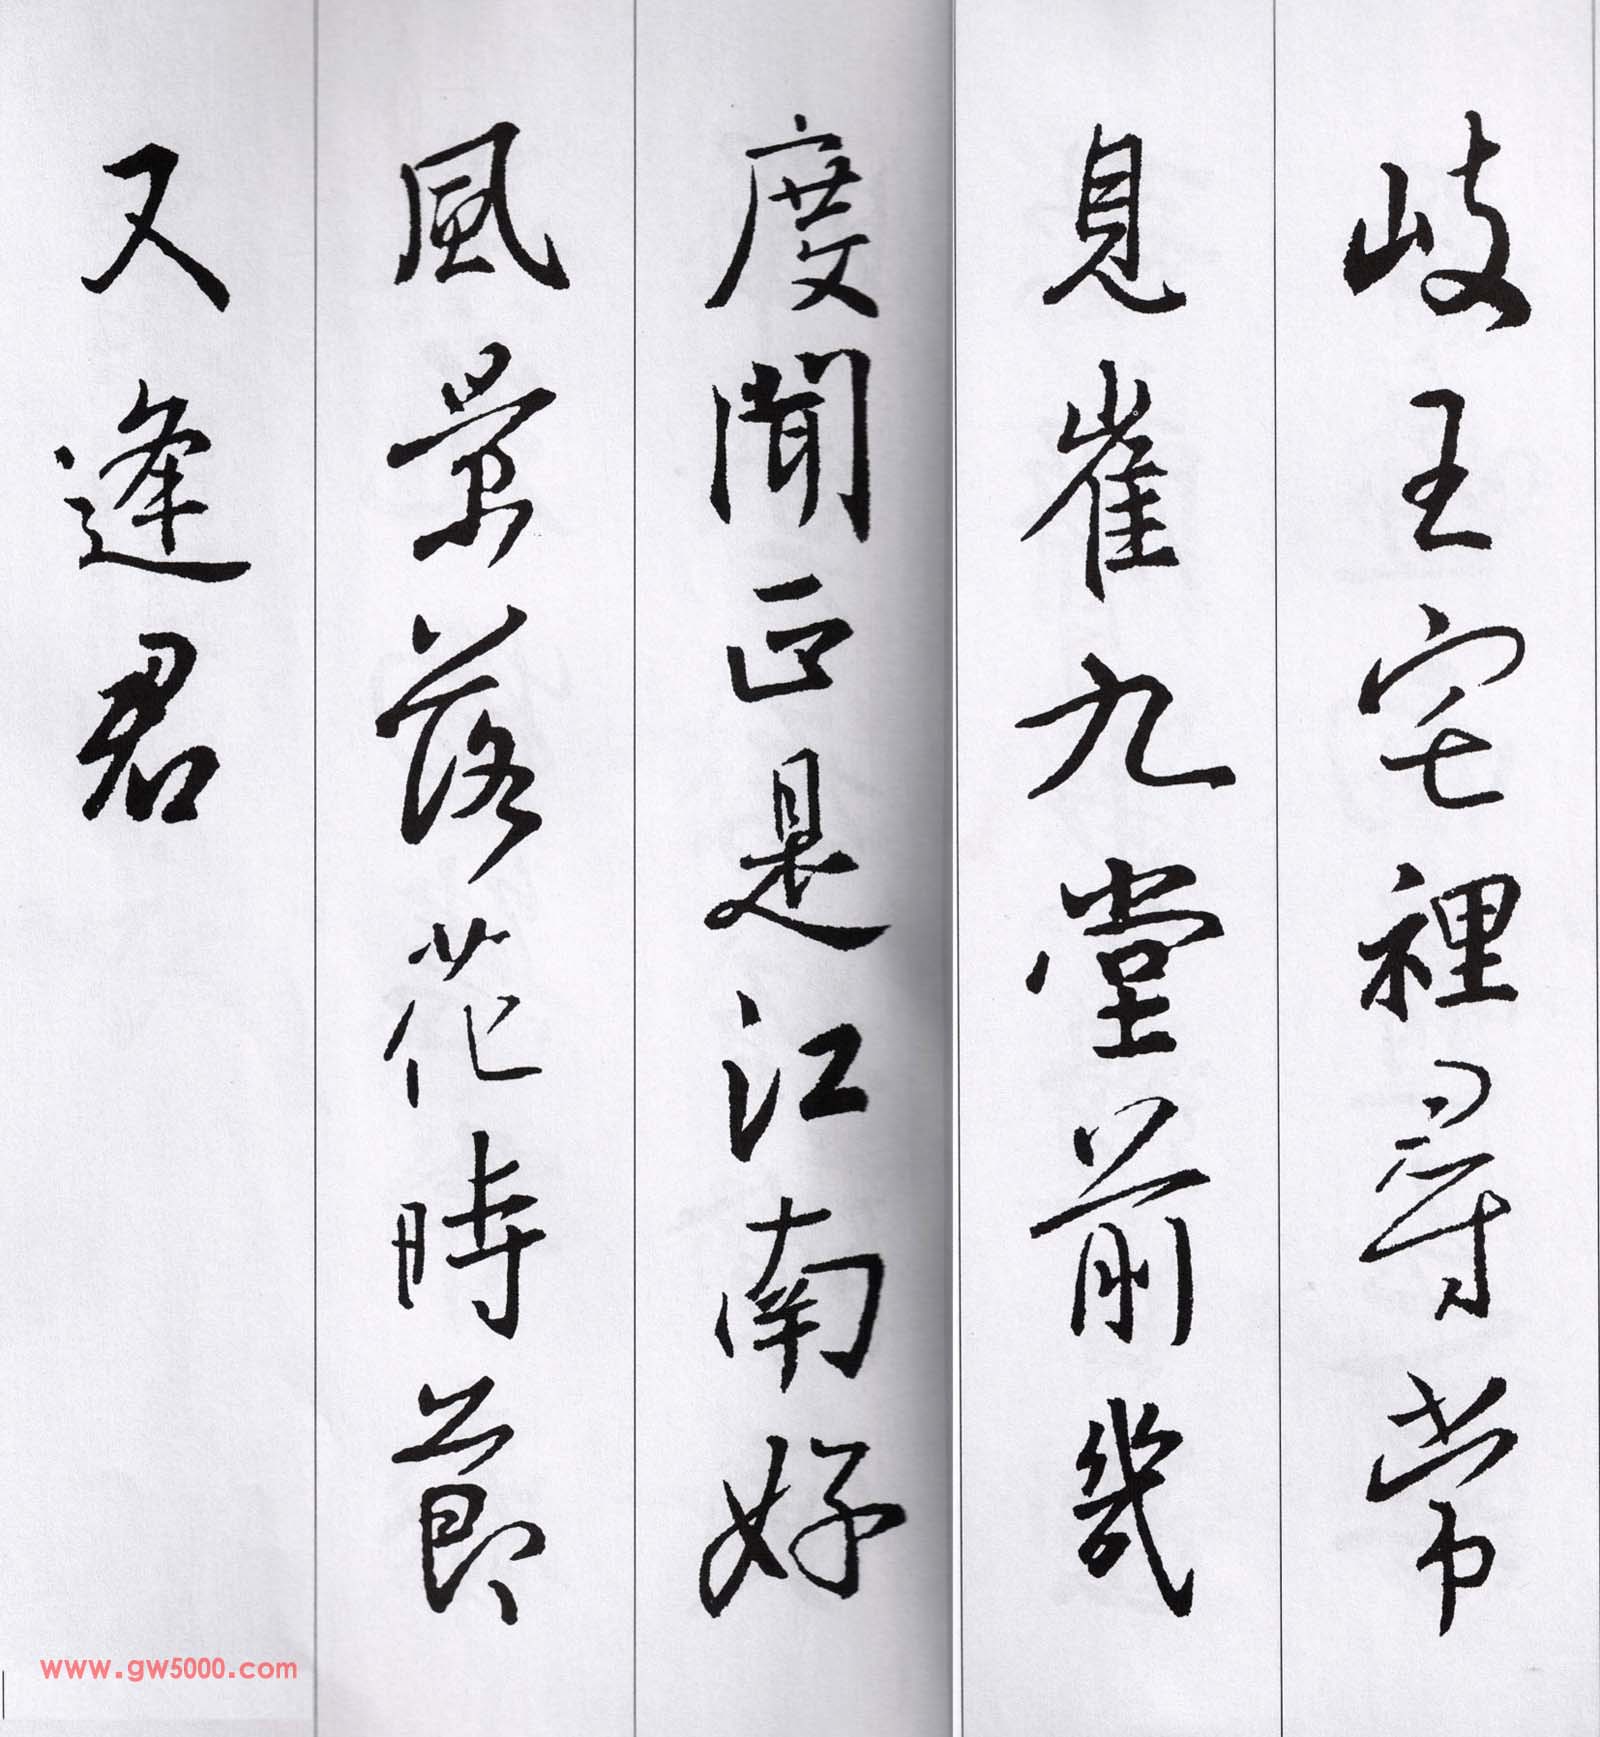 岐王宅裡尋常
見崔九堂前幾
度聞正是江南好
風景落花時節
又逢君
www.gw5000.com